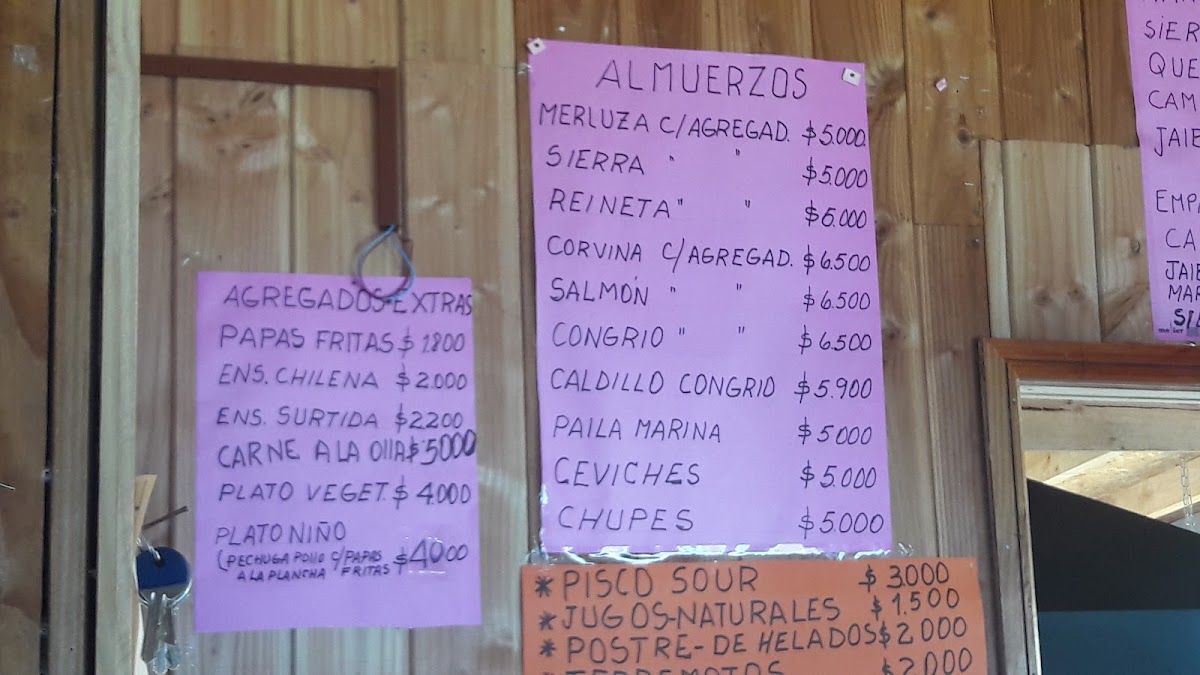 AGREGADOS-EXTRAS
PAPAS FRITAS $ 1800
ENS. CHILENA $ 2.000
ENS. SURTIDA $ 2200
CARNE A LA OllA $ 5000
PLATO VEGET. $ 4.000
PLATO NIÑO
(PECHUGA POLLO C/PAPAS $ 4000
A LA PLANCHA FRITAS
ALMUERZOS
MERLUZA C/AGREGAD. $ 5.000
SIERRA " " $ 5.000
REINETA " "
CORVINA C/AGREGAD. $ 6.500
SALMÓN " " $ 6.500
CONGRIO " " $ 6.500
CALDILLO CONGRIO $ 5.900
PAILA MARINA $ 5000
CEVICHES $ 5.000
CHUPES $ 5.000
* PISCO SOUR $ 3.000
* JUGOS-NATURALES $ 1.500
* POSTRE-DE HELADOS $ 2000
* TERREMOTOS $ 2.000
SIER
QUE
CAM
JAIE
EMPA
CA
JAIE
MAR